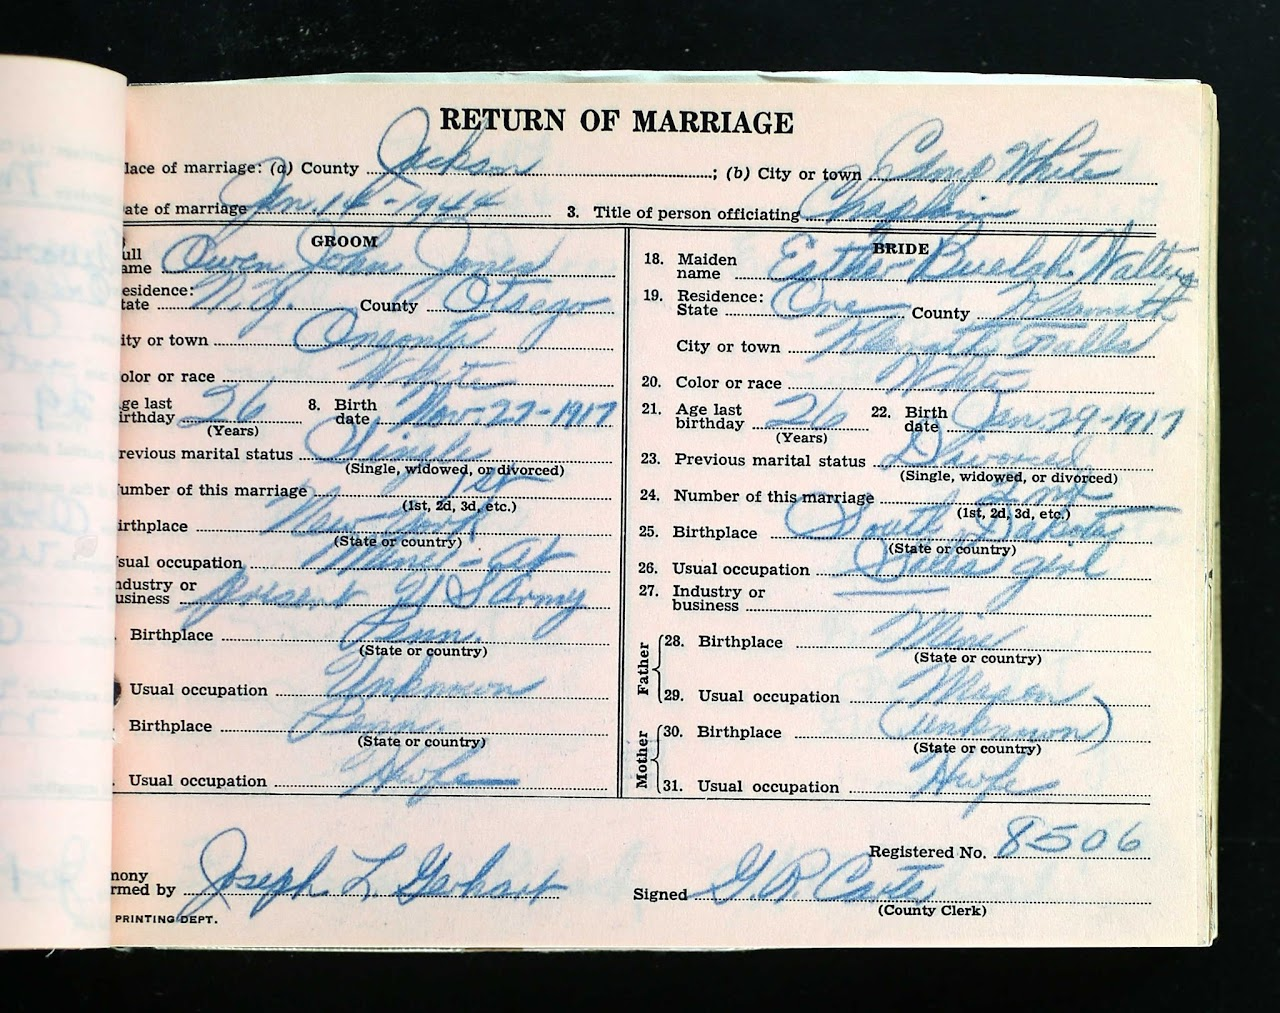 RETURN OF MARRIAGE
lace of marriage: (a) County Jackson ; (b) City or town Camp White
ate of marriage Jan. 14-1944 3. Title of person officiating Chaplain
GROOM
ull
ame Owen John Jones
esidence:
tate N.Y. County Otsego
ity or town Oneonta
olor or race White
ge last
irthday 26 (Years) 8. Birth date Nov-27-1917
revious marital status Single
(Single, widowed, or divorced)
umber of this marriage 1st
(1st, 2d, 3d, etc.)
irthplace New York
(State or country)
sual occupation Miner-at
ndustry or
usiness present U S Army
Birthplace Penn.
(State or country)
Usual occupation Unknown
Birthplace Penn
(State or country)
Usual occupation Hwfe
BRIDE
18. Maiden
name Esther Buelah Walters
19. Residence:
State Ore County Klamath
City or town Klamath Falls
20. Color or race White
21. Age last
birthday 26 (Years) 22. Birth date Jan. 29-1917
23. Previous marital status Divorced
(Single, widowed, or divorced)
24. Number of this marriage 2nd
(1st, 2d, 3d, etc.)
25. Birthplace South Dakota
(State or country)
26. Usual occupation Sales girl
27. Industry or
business
Father
28. Birthplace Minn
(State or country)
29. Usual occupation Mason
Mother
30. Birthplace (unknown)
(State or country)
31. Usual occupation Hwfe
Registered No. 8506
mony
rmed by Joseph L
Signed G. R. Carter
(County Clerk)
PRINTING DEPT.